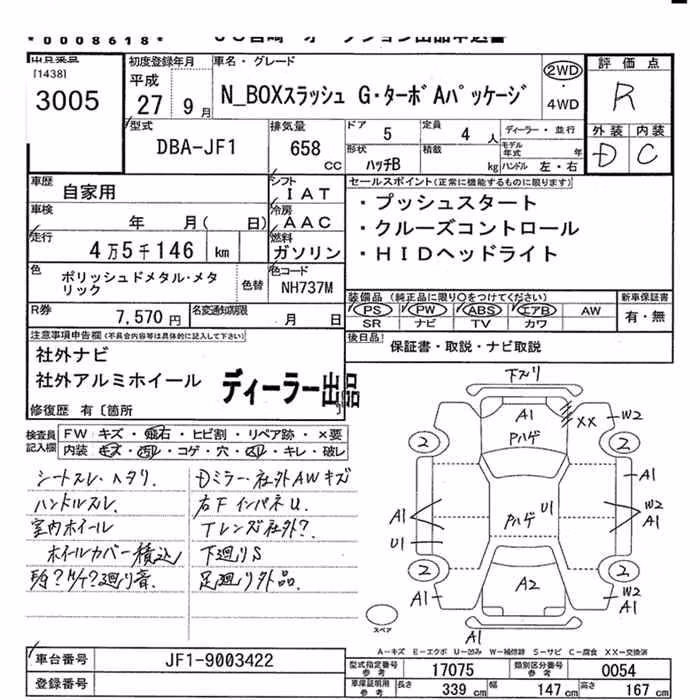 *0008618*
出品番号
[1438]
3005
初度登録年月
平成
27 9月
車名・グレード
N_BOXスラッシュ G・ターボAパッケージ
2WD
・
4WD
評価点
R
外装 内装
D C
型式
DBA-JF1
排気量
658
CC
ドア 5
定員 4 人
ディーラー・並行
形状
ハッチB
積載 kg
モデル年式 年
ハンドル 左・右
車歴
自家用
シフト
IAT
車検
年 月( 日)
冷房
AAC
走行
4万5千146 km
燃料
ガソリン
セールスポイント(正常に機能するものに限ります)
・プッシュスタート
・クルーズコントロール
・HIDヘッドライト
色
ポリッシュドメタル・メタリック
色替
色コード
NH737M
R券
7,570円
名変通知期限
月 日
装備品(純正品に限り○をつけてください)
PS PW ABS エアB AW
SR ナビ TV カワ
新車保証書
有・無
後日品
保証書・取説・ナビ取説
注意事項申告欄(不具合内容等は具体的に記入して下さい)
社外ナビ
社外アルミホイール
ディーラー出品
修復歴 有〔箇所 〕
検査員記入欄
FW キズ・飛石・ヒビ割・リペア跡・×要
内装 キズ・汚レ・コゲ・穴・スレ・キレ・破レ
シートスレ・ヘタリ.
ハンドルスレ.
室内ホイール
ホイールカバー積込
Dミラー・社外AWキズ
右FインパネU.
Tレンズ社外?
下廻りS
足廻り外品.
下スリ
A1
Pハゲ
XX
W2
2
2
A1
A1
U1
Pハゲ
U1
W2
A1
2
2
A2
A1
W2
A1
スペア
A-キズ E-エクボ U-凹み W-補修跡 S-サビ C-腐食 XX-交換済
車台番号
JF1-9003422
登録番号
型式指定番号
参考
17075
類別区分番号
参考
0054
車庫証明用
参考
長さ 339 cm
幅 147 cm
高さ 167 cm